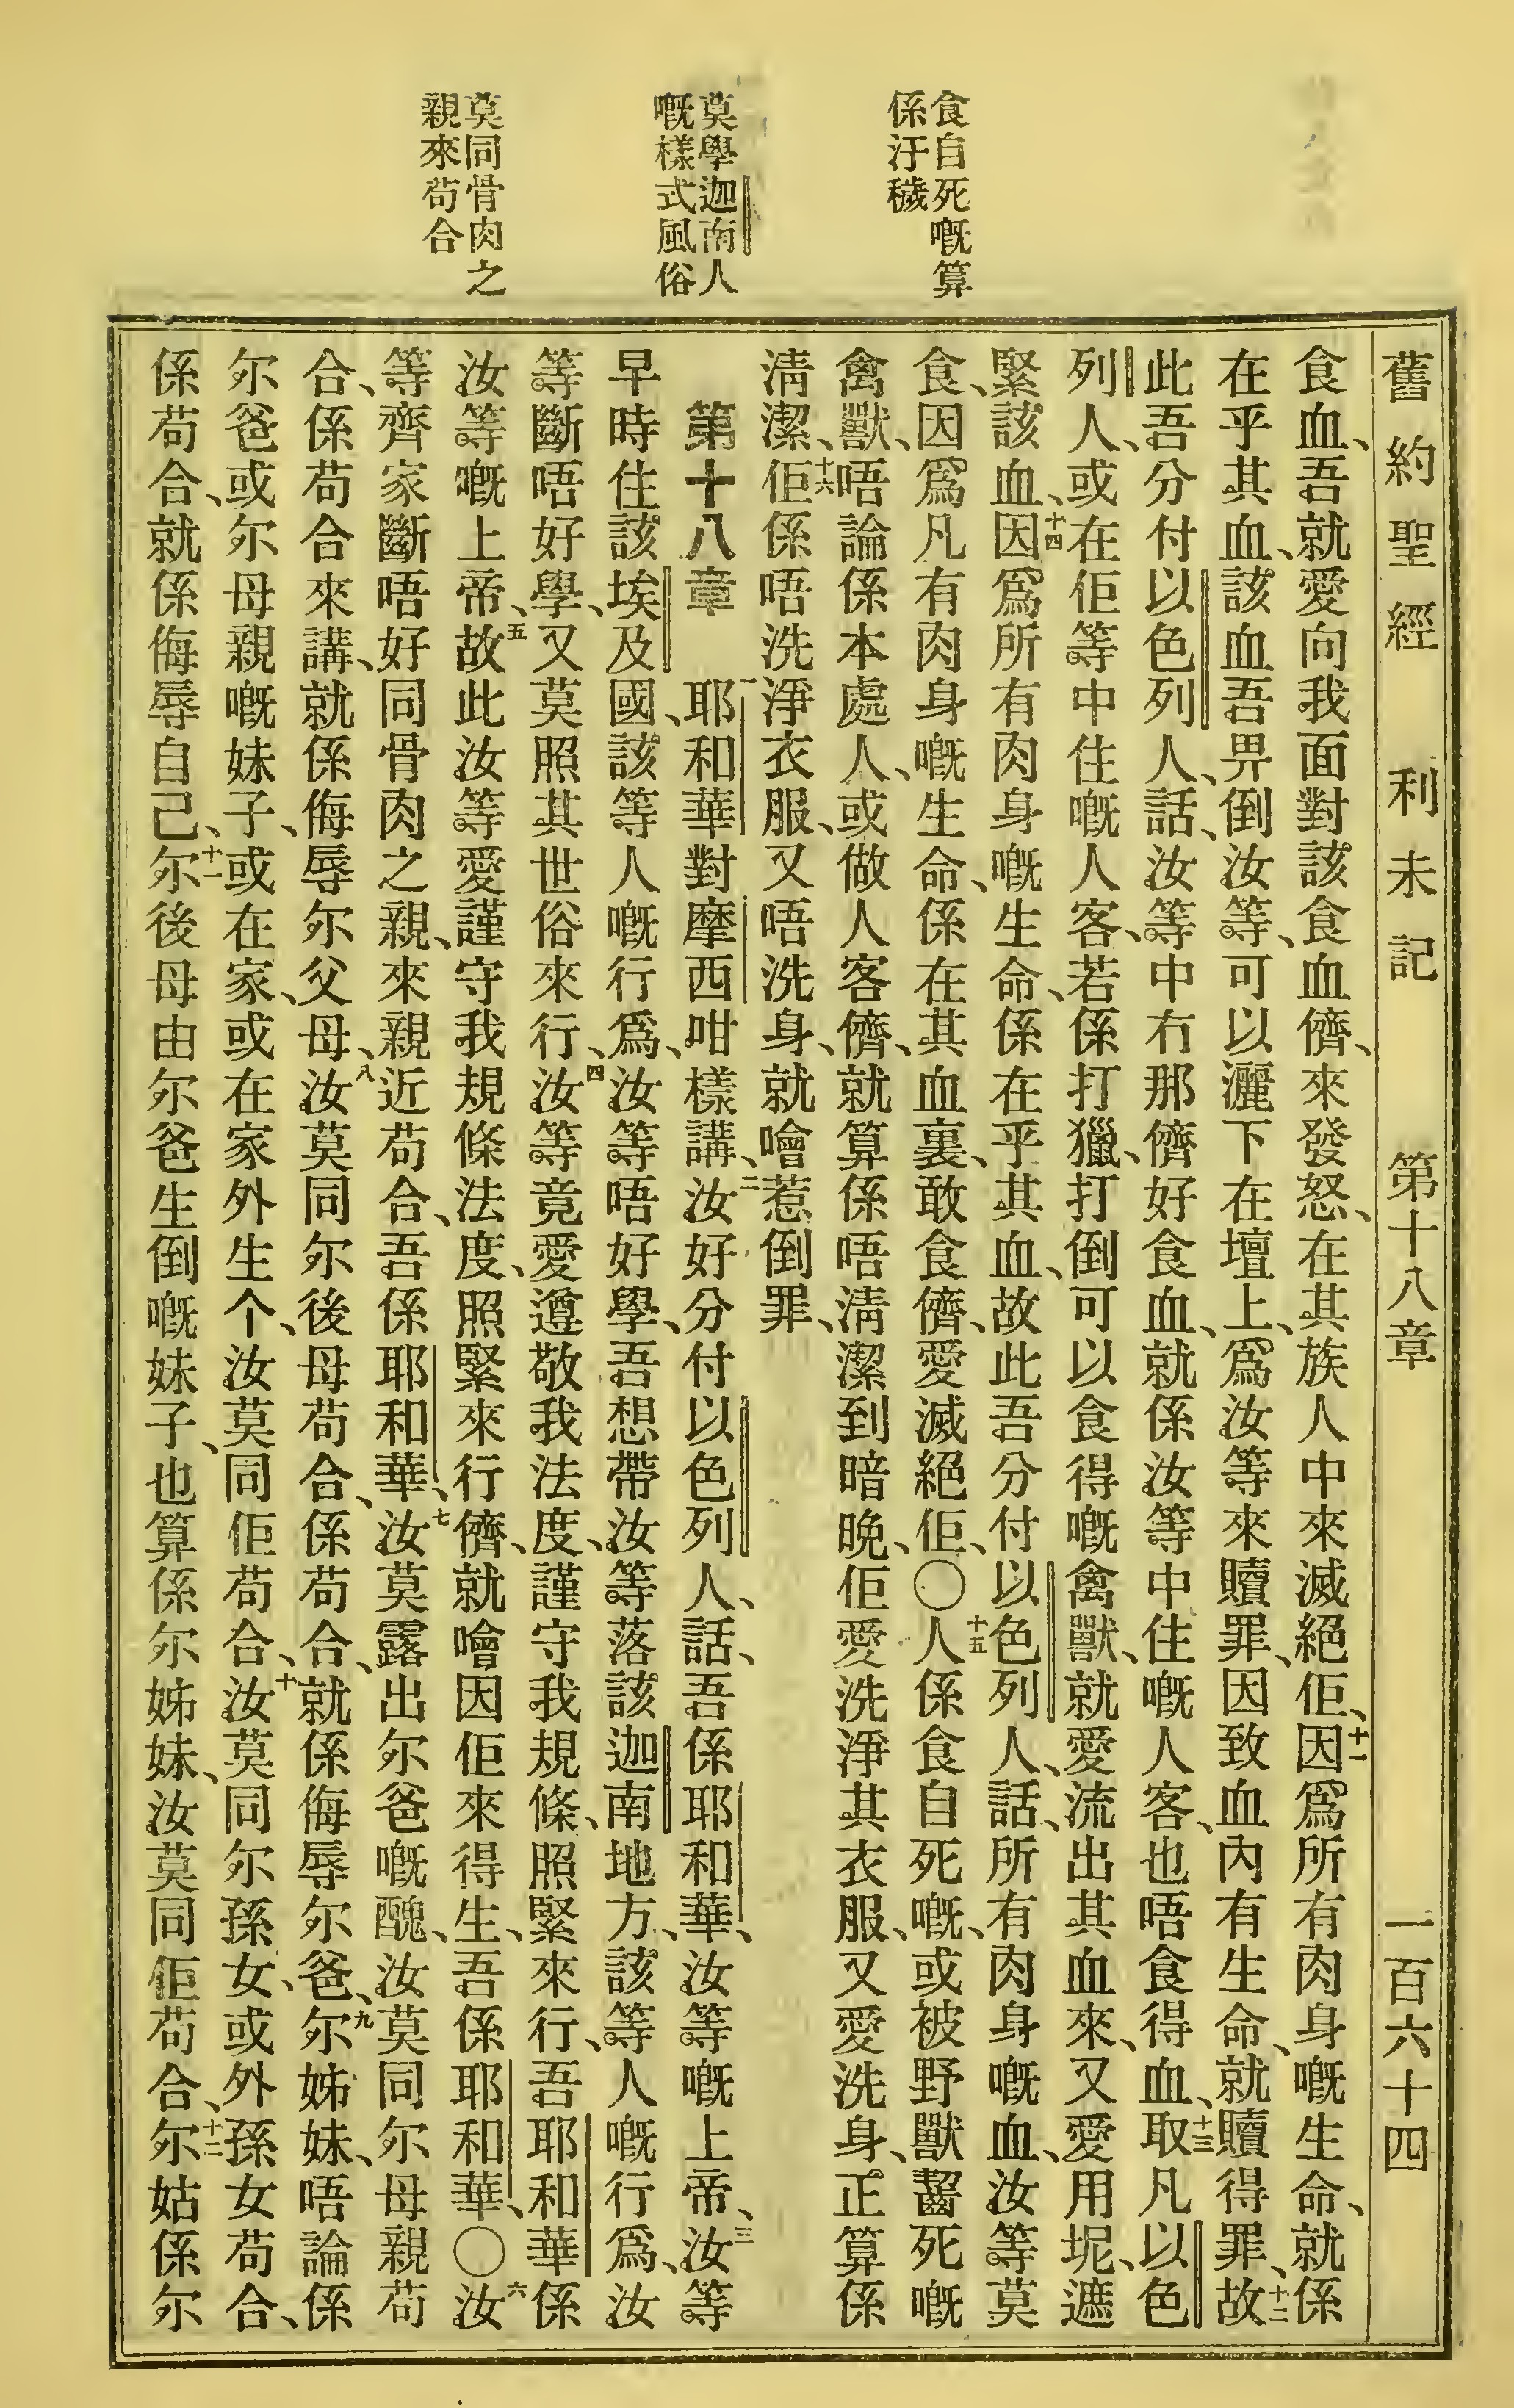 舊約聖經 利未記 第十八章 一百六十四
食自死嘅算
係汙穢
莫學迦南人
嘅樣式風俗
莫同骨肉之
親來苟合
食血、吾就愛向我面對該食血儕、來發怒、在其族人中來滅絕佢、十一因爲所有肉身嘅生命、就係
在乎其血、該血吾畀倒汝等、可以灑下在壇上、爲汝等來贖罪、因致血內有生命、就贖得罪、十二故
此吾分付以色列人、話、汝等中冇那儕好食血、就係汝等中住嘅人客、也唔食得血、十三取凡以色
列人、或在佢等中住嘅人客、若係打獵、打倒可以食得嘅禽獸、就愛流出其血來、又愛用坭、遮
緊該血、十四因爲所有肉身嘅生命、係在乎其血、故此吾分付以色列人、話、所有肉身嘅血、汝等莫
食、因爲凡有肉身嘅生命、係在其血裏、敢食儕、愛滅絕佢、〇十五人係食自死嘅、或被野獸齧死嘅
禽獸、唔論係本處人、或做人客儕、就算係唔淸潔到暗晚、佢愛洗淨其衣服、又愛洗身、正算係
淸潔、十六佢係唔洗淨衣服、又唔洗身、就噲惹倒罪、
第十八章 一耶和華對摩西咁樣講、二汝好分付以色列人、話、吾係耶和華、汝等嘅上帝、三汝等
早時住該埃及國、該等人嘅行爲、汝等唔好學、吾想帶汝等落該迦南地方、該等人嘅行爲、汝
等斷唔好學、又莫照其世俗來行、四汝等竟愛遵敬我法度、謹守我規條、照緊來行、吾耶和華係
汝等嘅上帝、五故此汝等愛謹守我規條法度、照緊來行儕、就噲因佢來得生、吾係耶和華、〇六汝
等齊家斷唔好同骨肉之親、來親近苟合、吾係耶和華、七汝莫露出尔爸嘅醜、汝莫同尔母親苟
合、係苟合來講、就係侮辱尔父母、八汝莫同尔後母苟合、係苟合、就係侮辱尔爸、九尔姊妹、唔論係
尔爸或尔母親嘅妹子、或在家、或在家外生个、汝莫同佢苟合、十汝莫同尔孫女、或外孫女苟合、
係苟合、就係侮辱自己、十一尔後母由尔爸生倒嘅妹子、也算係尔姊妹、汝莫同佢苟合、十二尔姑係尔